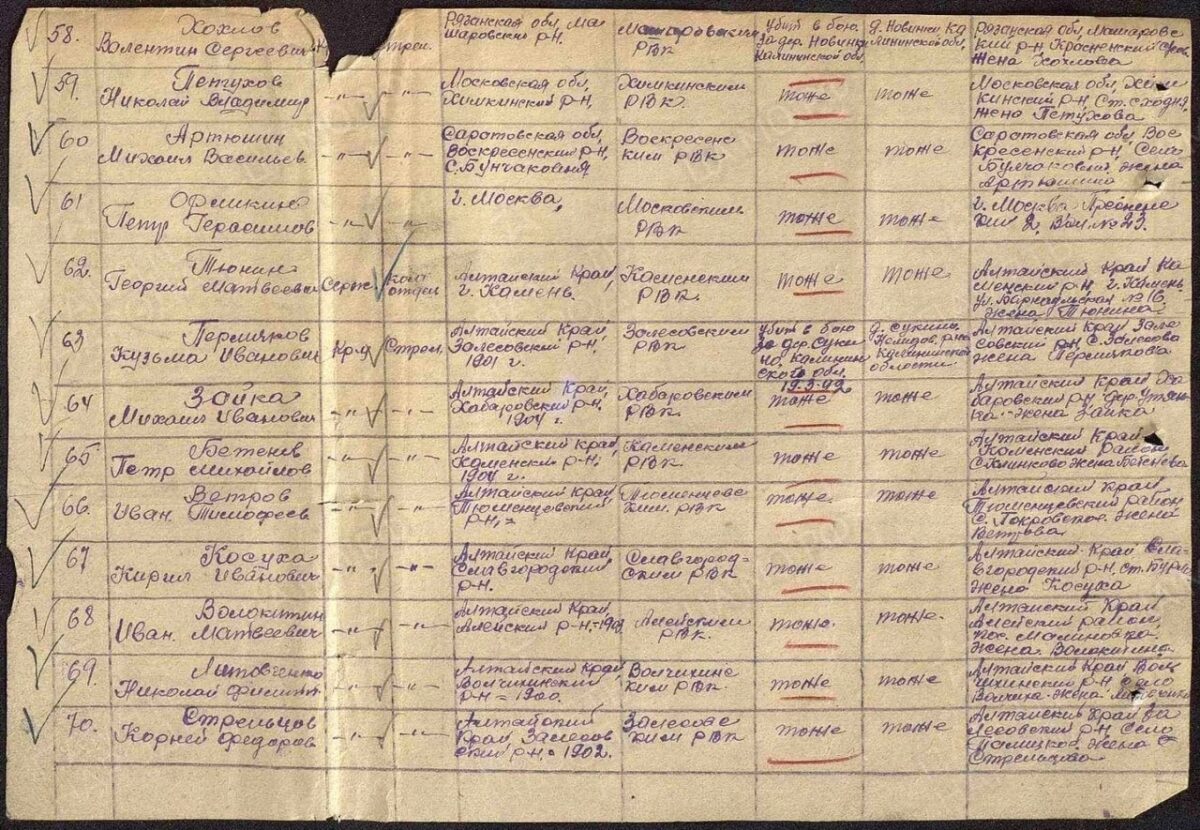 58.
Хохлов
Валентин Сергеевич
Стрел.
Рязанская обл. Ма
шаровский р-н.
РВК
убит в бою
за дер. Новинки
Калининской обл.
д. Новинки Ка
лининской обл.
Рязанская обл. Машаровс
кий р-н Красненский
Жена Хохлова
59.
Петухов
Николай Владимир
-"-
-"-
Московская обл.
Химкинский р-н.
Химкинским
РВК.
тоже
тоже
Московская обл. Хим
кинский р-н. Ст. Сходня.
жена Петухова
60
Артюшин
Михаил Васильев
-"-
-"-
Саратовская обл.
Воскресенский р-н.
Воскресенс
ким РВК
тоже
тоже
Саратовская обл. Вос
кресенский р-н. Село
жена
Артюшина
61
Орешкин
Петр Герасимов
-"-
-"-
г. Москва,
Московским
РВК
тоже
тоже
г. Москва
2. № 23.
62.
Тюнин
Георгий Матвеевич
Серж.
Ком.
отдел
Алтайский Край
г. Камень.
Каменским
РВК.
тоже
тоже
Алтайский Край Ка
менский р-н. г. Камень
ул. Барнаульская № 16.
жена Тюнина
63
Пермяков
Кузьма Иванович
Кр.д
Стрел.
Алтайский Край
Залесовский р-н.
1901 г.
Залесовским
РВК
убит в бою
за дер. Суки
но. Калинин
ской обл.
19.3.42
д. Сукино
Калининской
области
Алтайский Край Зале
совский р-н. с. Залесово
жена Пермякова
64
Зайка
Михаил Иванович
-"-
-"-
Алтайский Край,
Хабаровский р-н.
1904 г.
Хабаровским
РВК.
тоже
тоже
Алтайский Край Ха
баровский р-н. дер.
жена Зайка
65
Бетенев
Петр Михайлов
-"-
-"-
Алтайский Край,
Каменский р-н.
1904 г.
Каменским
РВК.
тоже
тоже
Алтайский Край
Каменский Район
жена Бетенева
66.
Ветров
Иван Тимофеев
-"-
-"-
Алтайский Край,
Тюменцевский
р-н. =
Тюменцевс
ким. РВК
тоже
тоже
Алтайский Край
Тюменцевский район
С. Покровское. жена
Ветрова
67
Косуха
Кирил Иванович
-"-
-"-
Алтайский Край
Славгородский
р-н.
Славгород-
ским РВК
тоже
тоже
Алтайский Край Сла
вгородский р-н. ст.
жена Косуха
68
Волокитин
Иван Матвеевич
-"-
-"-
Алтайский Край,
Алейский р-н.
Алейским
РВК.
тоже.
тоже.
Алтайский Край
Алейский район,
пос. Малиновка.
жена. Волокитина.
69.
Литовченко
Николай Филипп.
-"-
-"-
Алтайский Край,
Волчихинский
р-н = 1900.
Волчихинс
ким РВК
тоже
тоже
Алтайский Край Волч
ихинский р-н село
Волчиха жена Литовченко
70.
Стрельцов
Корней Федоров
-"-
-"-
Алтайский
Край Залесов
ский р-н. = 1902.
Залесовс
ким РВК
тоже
тоже
Алтайский Край За
лесовский р-н. Село
жена
Стрельцова